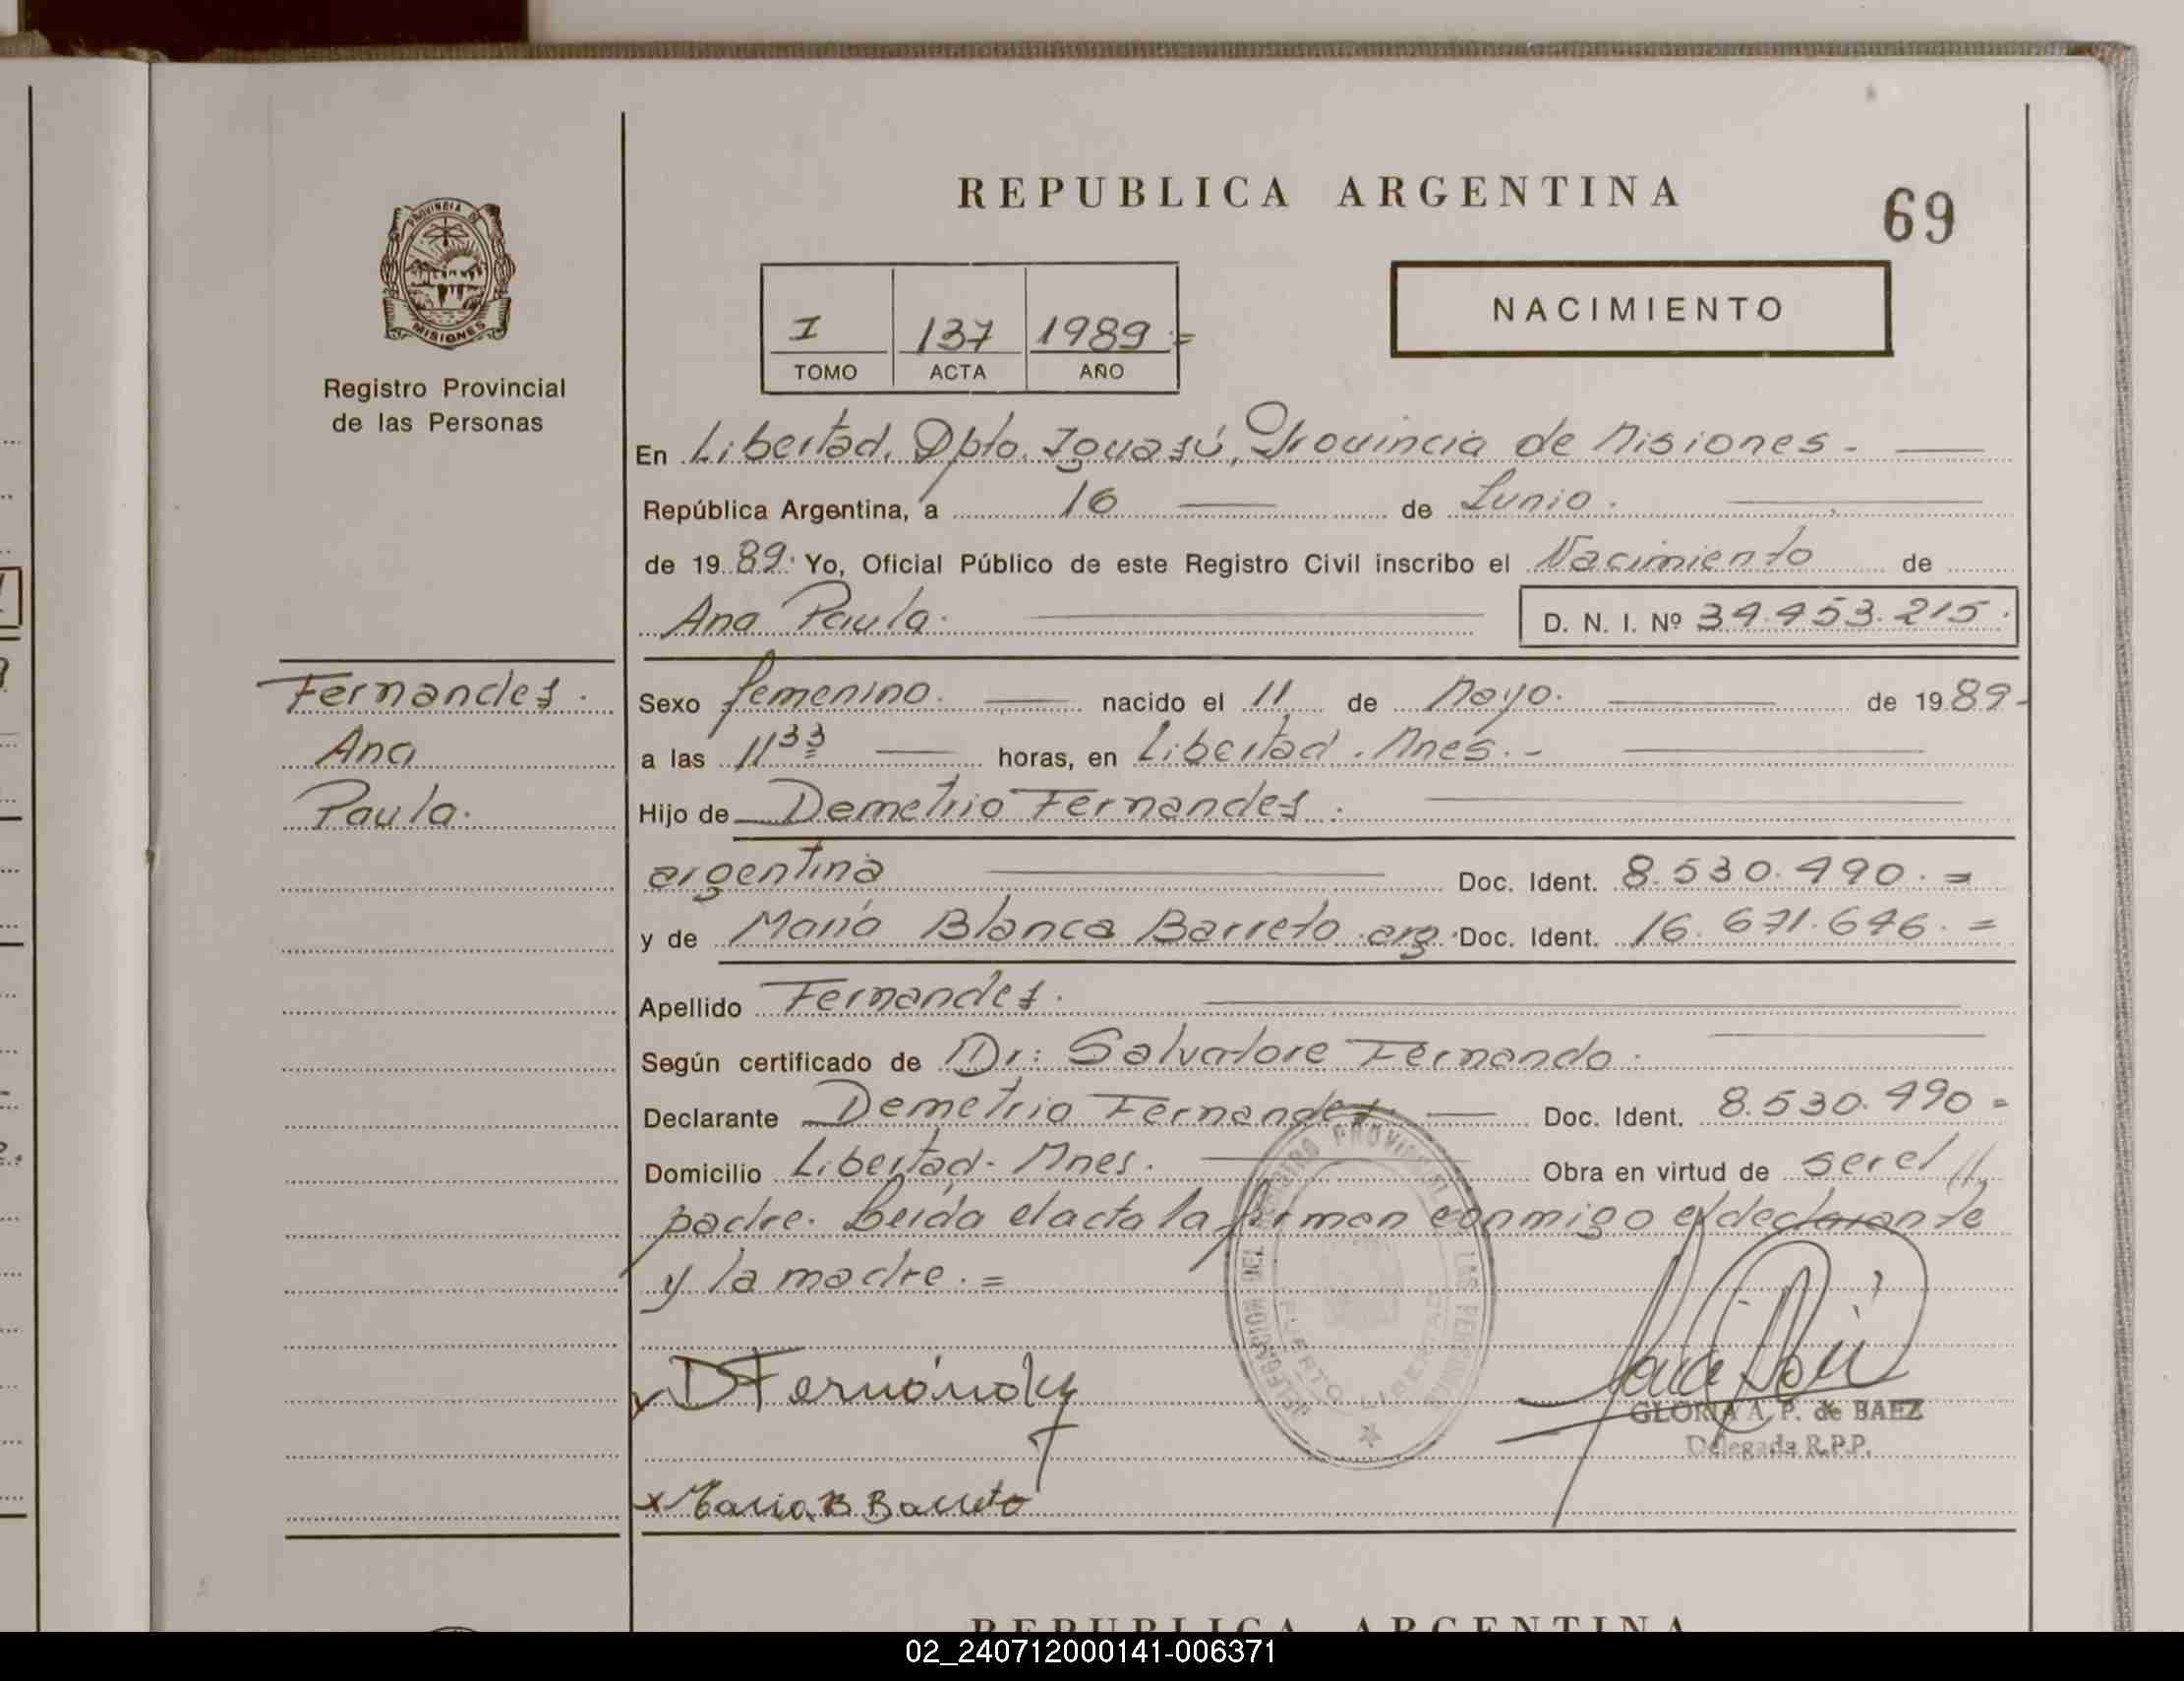 REPUBLICA ARGENTINA
69
NACIMIENTO
I 137 1989 =
TOMO ACTA AÑO
PROVINCIA DE
MISIONES
Registro Provincial
de las Personas
En Libertad, Dpto. Iguazú, Provincia de Misiones. -
República Argentina, a 16 de Junio.
de 1989. Yo, Oficial Público de este Registro Civil inscribo el Nacimiento de
Ana Paula. D. N. I. Nº 34.453.215.
Fernandez.
Ana
Paula.
Sexo femenino. nacido el 11 de Mayo. de 1989-
a las 11 33 horas, en Libertad. Mnes. -
Hijo de Demetrio Fernandez.
argentina Doc. Ident. 8.530.490. =
y de María Blanca Barreto arg. Doc. Ident. 16.671.646. =
Apellido Fernandez.
Según certificado de Dr: Salvatore Fernando.
Declarante Demetrio Fernandez. Doc. Ident. 8.530.490 =
Domicilio Libertad- Mnes. Obra en virtud de ser el //
padre. Leída el acta la firman conmigo el declarante
y la madre. =
DFernández
x Maria B Barreto
DELEGACION DEL REGISTRO PROVINCIAL DE LAS PERSONAS
PUERTO LIBERTAD
GLORIA A. P. de BAEZ
Delegada R.P.P.
REPUBLICA ARGENTINA
02_240712000141-006371